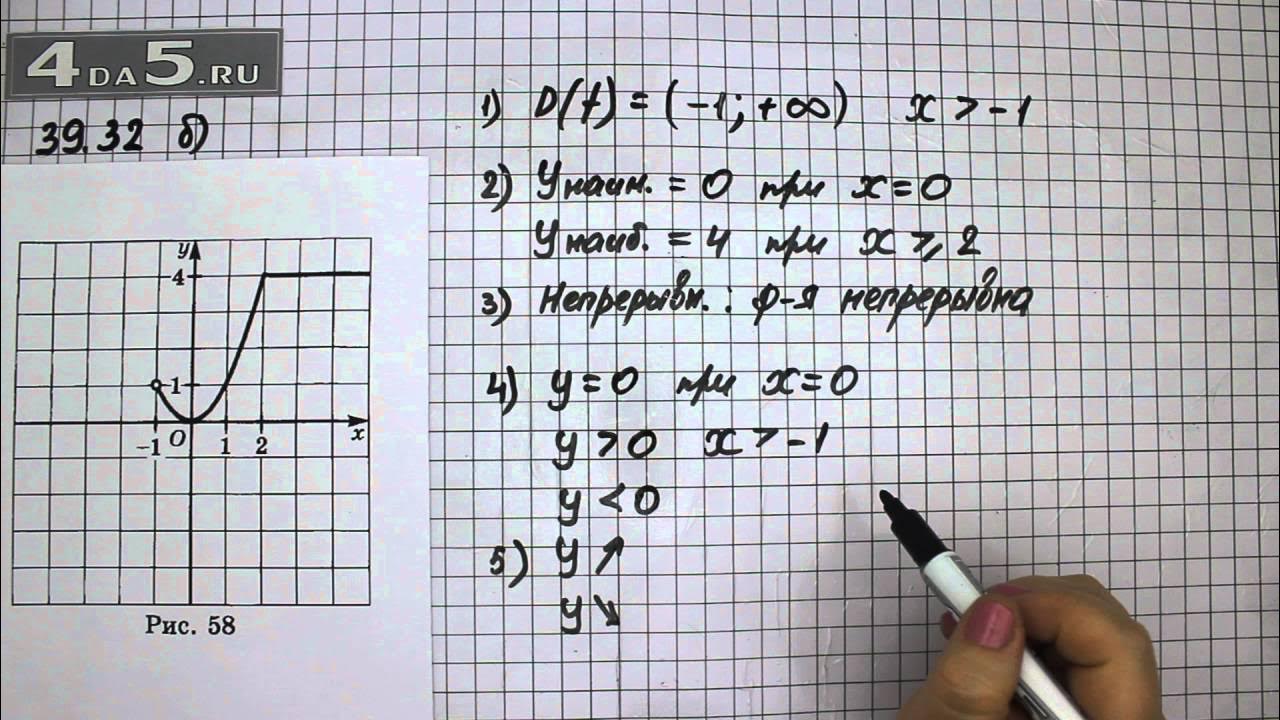 4DA5.RU
39.32 б)
1) D(f) = (-1; +∞) x > -1
2) Унаим. = 0 при x = 0
Унаиб. = 4 при x ⩾ 2
3) Непрерывн.: ф-я непрерывна
4) y = 0 при x = 0
y > 0 x > -1
y < 0
5) y ↗
y ↘
y
4
1
-1 O 1 2 x
Рис. 58